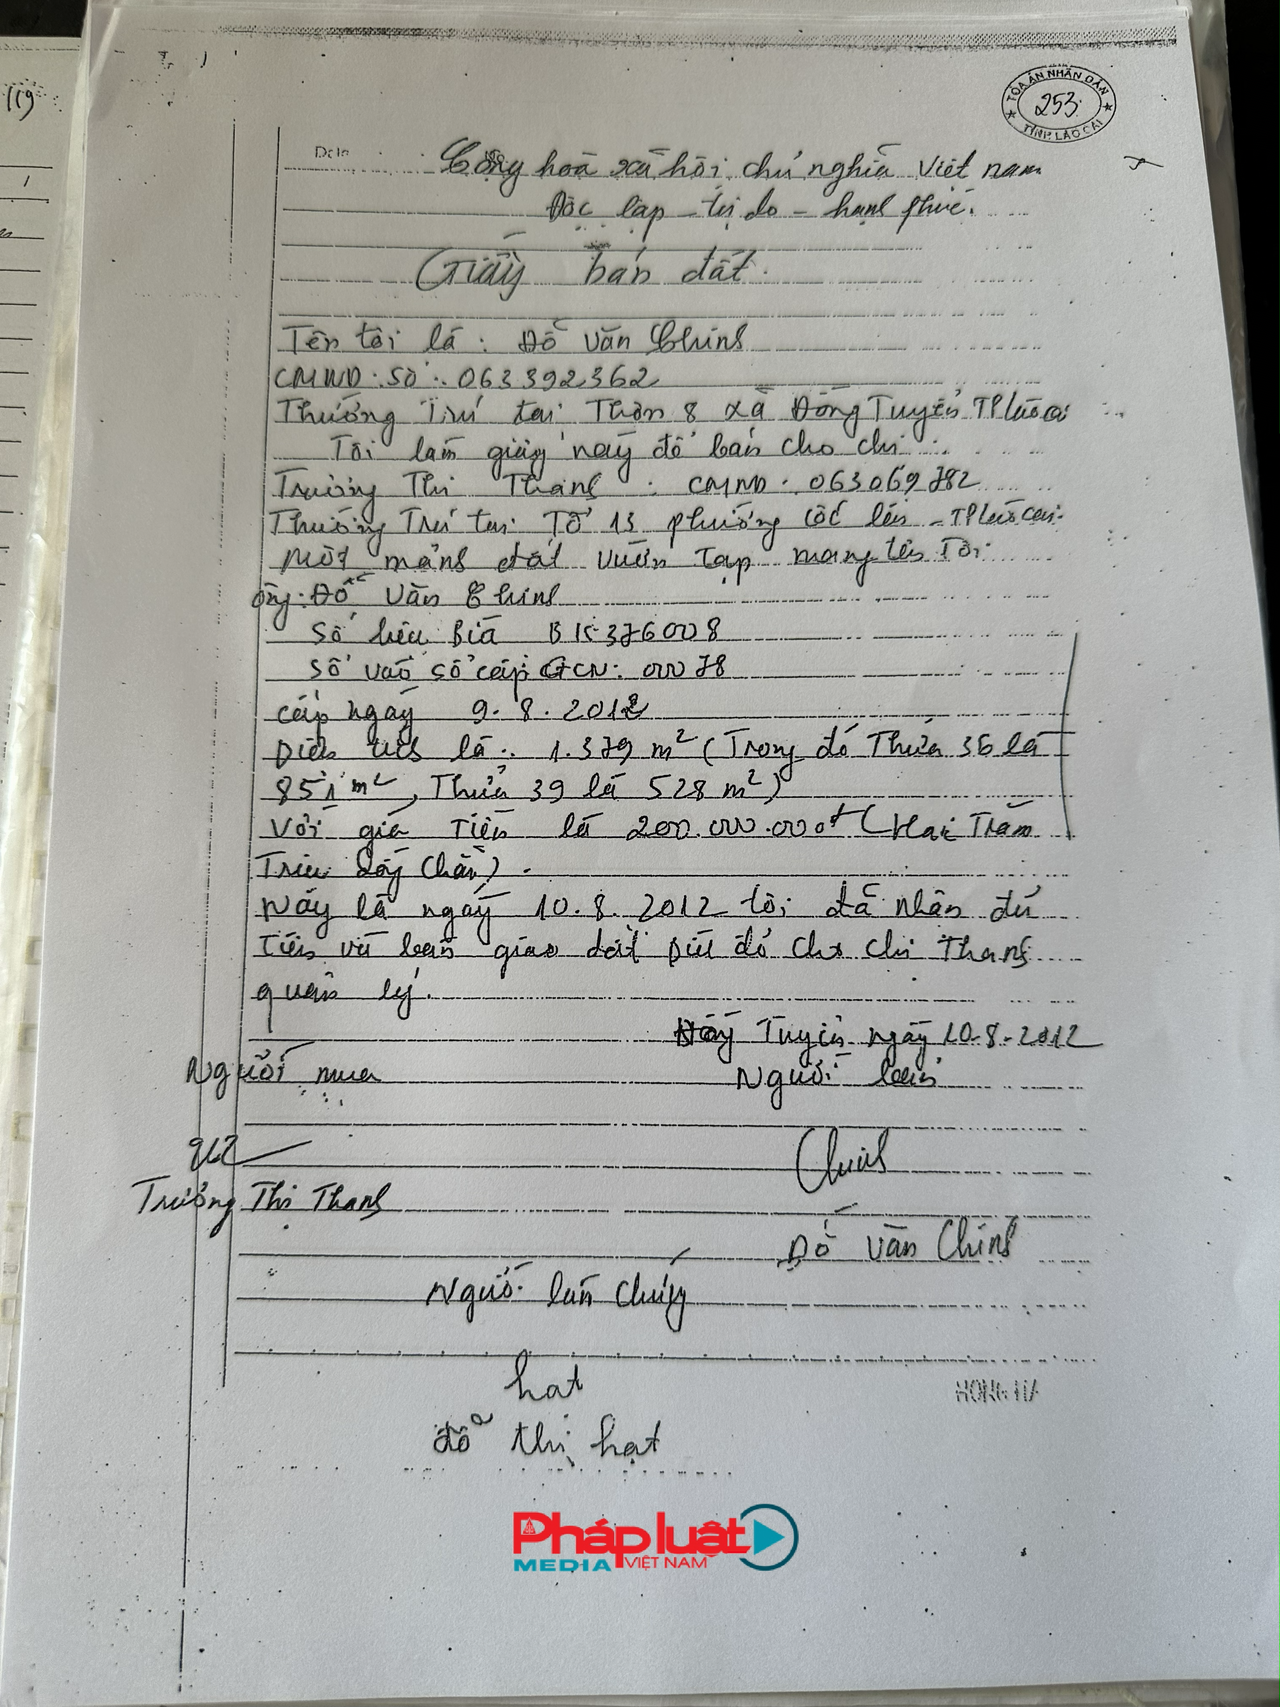 119
TÒA ÁN NHÂN DÂN
253
TỈNH LÀO CAI
Date
Cộng hoà xã hội chủ nghĩa Việt nam
Độc lập - tự do - hạnh phúc.
Giấy bán đất.
Tên tôi là: Đỗ Văn Chính
CMND số: 063392362
Thường Trú tại Thôn 8 xã Đồng Tuyển TP Lào Cai
Tôi làm giấy này để bán cho chị:
Trương Thị Thanh. CMND: 063069782
Thường Trú tại: Tổ 13 phường Cốc Lếu - TP Lào Cai.
Một mảnh đất vườn tạp mang tên Tôi
ông: Đỗ Văn Chính
Số hiệu Bìa BK 376008
Số vào sổ cấp GCN: 00078
cấp ngày 9.8.2012
Diện tích là: 1.379 m² (Trong đó Thửa 36 là
851 m², Thửa 39 là 528 m²)
Với giá Tiền là 200.000.000đ (Hai Trăm
Triệu đồng chẵn).
Nay là ngày 10.8.2012 tôi đã nhận đủ
Tiền và bàn giao đất bìa đỏ cho chị Thanh
quản lý.
Đồng Tuyển ngày 10-8-2012
Người mua
Người bán
Chính
Trương Thị Thanh
Đỗ Văn Chính
Người làm chứng
hạt
đỗ thị hạt
HONG HA
Pháp luật
MEDIA VIỆT NAM